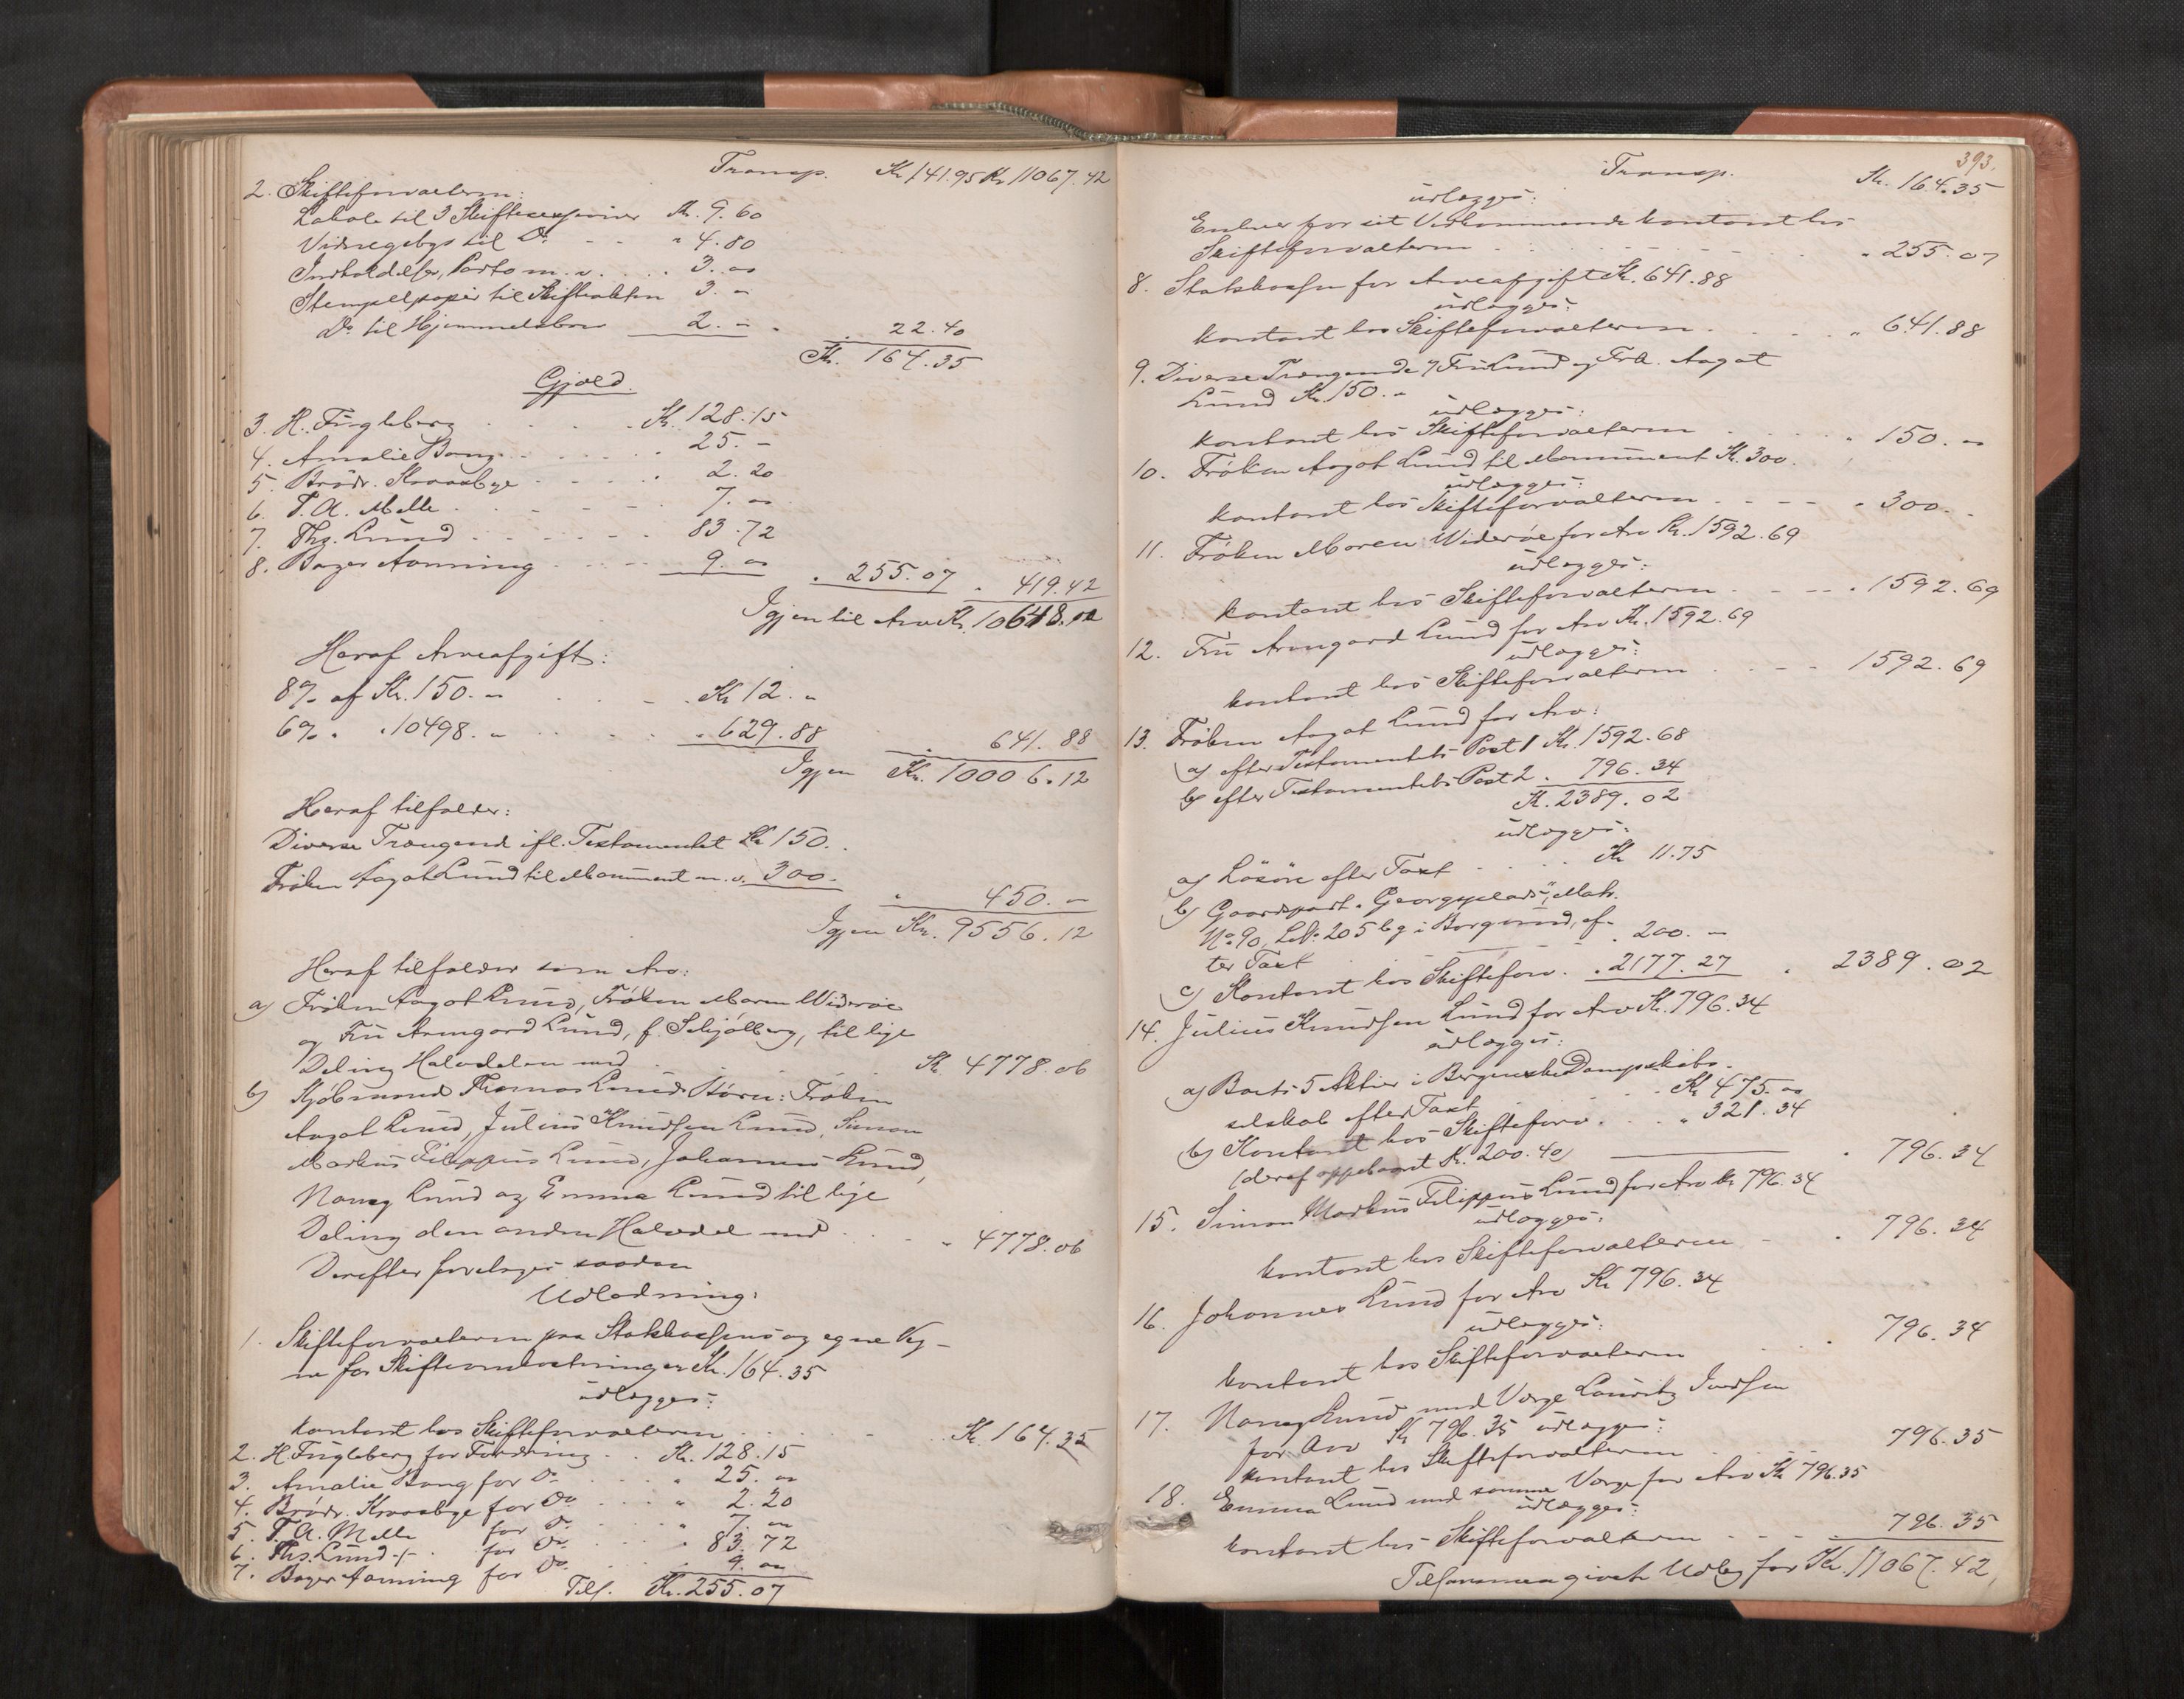 Transp. Kr. 141.95 Kr. 11067.42
2. Skifteforvalteren:
Lokale til 3 Skiftesessioner Kr. 9.60
Vidnegebyr til Do - - " 4.80
Indkaldelse, Porto m. v. . . . 3. "
Stempelpapir til Skifteakten 3. "
Do til Hjemmelsbrev 2. " . 22.40
Kr. 164.35
Gjæld.
3. H. Fugleberg . . . . Kr. 128.15
4. Amalie Bang . . . . . 25. "
5. Brødr. Kroosbye . . . . 2.20
6. T. A. Melle . . . . . 7. "
7. Ths. Lund . . . . . . 83.72
8. Bager Aanning . . . . 9. " . 255.07 " 419.42
Igjen til Arv Kr. 10648. "
Heraf Arveafgift:
8% af Kr. 150. " . . . Kr. 12. "
6% " " 10498. " . . . " 629.88 . 641.88
Igjen Kr. 10006.12
Heraf tilfalder:
Diverse Trængende ifl. Testamentet Kr 150. "
Frøken Aagot Lund til Monument m. v. 300. " " 450. "
Igjen Kr. 9556.12
Heraf tilfalder som Arv:
a) Frøken Aagot Lund, Frøken Maren Widerøe
og Fru Armgard Lund, f. Schjølberg, til lige
Deling Halvdelen med . . . . Kr. 4778.06
b) Kjøbmand Thomas Lunds Børn: Frøken
Aagot Lund, Julius Knudsen Lund, Simon
Markus Filippus Lund, Johannes Lund,
Nancy Lund og Emma Lund til lige
Deling den anden Halvdel med . . . " 4778.06
Derefter foretages saadan
Udlodning:
1. Skifteforvalteren paa Statskassens og egne Veg-
ne for Skifteomkostninger Kr. 164.35
udlægges:
kontant hos Skifteforvalteren . . . . Kr. 164.35
2. H. Fugleberg for Fordring . . Kr. 128.15
3. Amalie Bang for Do . . . " 25. "
4. Brødr. Kroosbye for Do . . . " 2.20
5. T. A. Melle for Do . . " 7. "
6. Ths. Lund for Do . . . " 83.72
7. Bager Aanning for Do . . . 9. "
Tils. Kr. 255.07
393.
Transp. Kr. 164.35
udlægges:
Enhver for sit Vedkommende kontant hos
Skifteforvalteren . . . . . . " 255.07
8. Statskassen for Arveafgift Kr. 641.88
udlægges:
kontant hos Skifteforvalteren . . . . " 641.88
9. Diverse Trængende Fru Lund og Frk. Aagot
Lund Kr. 150. "
udlægges:
kontant hos Skifteforvalteren . . . . " 150. "
10. Frøken Aagot Lund til Monument Kr. 300.
udlægges:
kontant hos Skifteforvalteren . . . . " 300. "
11. Frøken Maren Widerøe for Arv Kr. 1592.69
udlægges:
kontant hos Skifteforvalteren . . . . " 1592.69
12. Fru Armgard Lund for Arv Kr. 1592.69
udlægges:
kontant hos Skifteforvalteren . . . . 1592.69
13. Frøken Aagot Lund for Arv:
a) efter Testamentets Post 1 Kr. 1592.68
b) efter Testamentets Post 2 . 796.34
Kr. 2389.02
udlægges:
a) Løsøre efter Taxt . . . . Kr 11.75
b) Gaardpart "Georgsplads", Matr.
No 90, Lb. 205 bg i Borgund, ef-
ter Taxt . . . . 200. "
c) Kontant hos Skifteforv. . . 2177.27 . 2389.02
14. Julius Knudsen Lund for Arv Kr. 796.34
udlægges:
a) Boets 5 Aktier i Bergenske Dampskibs-
selskab efter Taxt . . . Kr 475. "
b) Kontant hos Skifteforv. . . . " 321.34
(deraf oppebaaret Kr. 200.40) . 796.34
15. Simon Markus Filippus Lund for Arv Kr 796.34
udlægges:
kontant hos Skifteforvalteren . . 796.34
16. Johannes Lund for Arv Kr 796.34
udlægges:
kontant hos Skifteforvalteren . . . 796.34
17. Nancy Lund med Værge Lauritz
for Arv Kr 796.35 udlægges:
kontant hos Skifteforvalteren . . . 796.35
18. Emma Lund med samme Værge for Arv Kr 796.35
udlægges:
kontant hos Skifteforvalteren . . . . 796.35
Tilsammen givet Udlæg for Kr. 11067.42